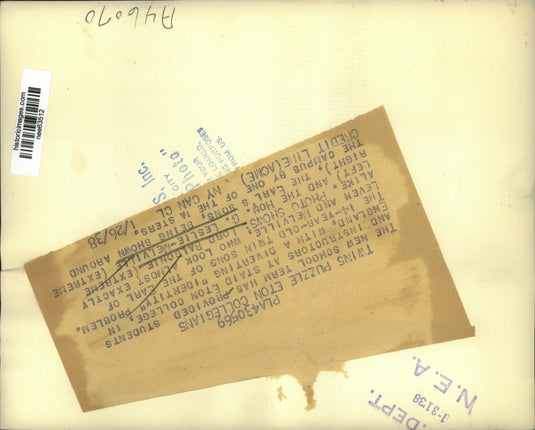 A46070
historicimages.com
nee63512
S, Inc.
CITY
Photo"
FROM US.
PLA430569
TWINS PUZZLE ETON COLLEGIANS
THE NEW SCHOOL TERM HAS PROVIDED STUDENTS
AND INSTRUCTORS AT STAID ETON COLLEGE, IN
ENGLAND, A DIVERTING "IDENTITY" PROBLEM.
THE 14-YEAR-OLD TWIN SONS OF THE EARL OF
LEVEN AND MELVILLE, WHO LOOK EXACTLY
ALIKE. PHOTO SHOWS LORD BALGONIE (EXTREME
LEFT), AND THE HON. G. LESLIE-MELVILLE (EXTREME
RIGHT), THE EARL'S SONS, BEING SHOWN AROUND
THE CAMPUS BY ONE OF THE MASTERS.
CREDIT LINE (ACME) NY CAN DA CL 1/26/38
DEPT.
1-3138
N.E.A.